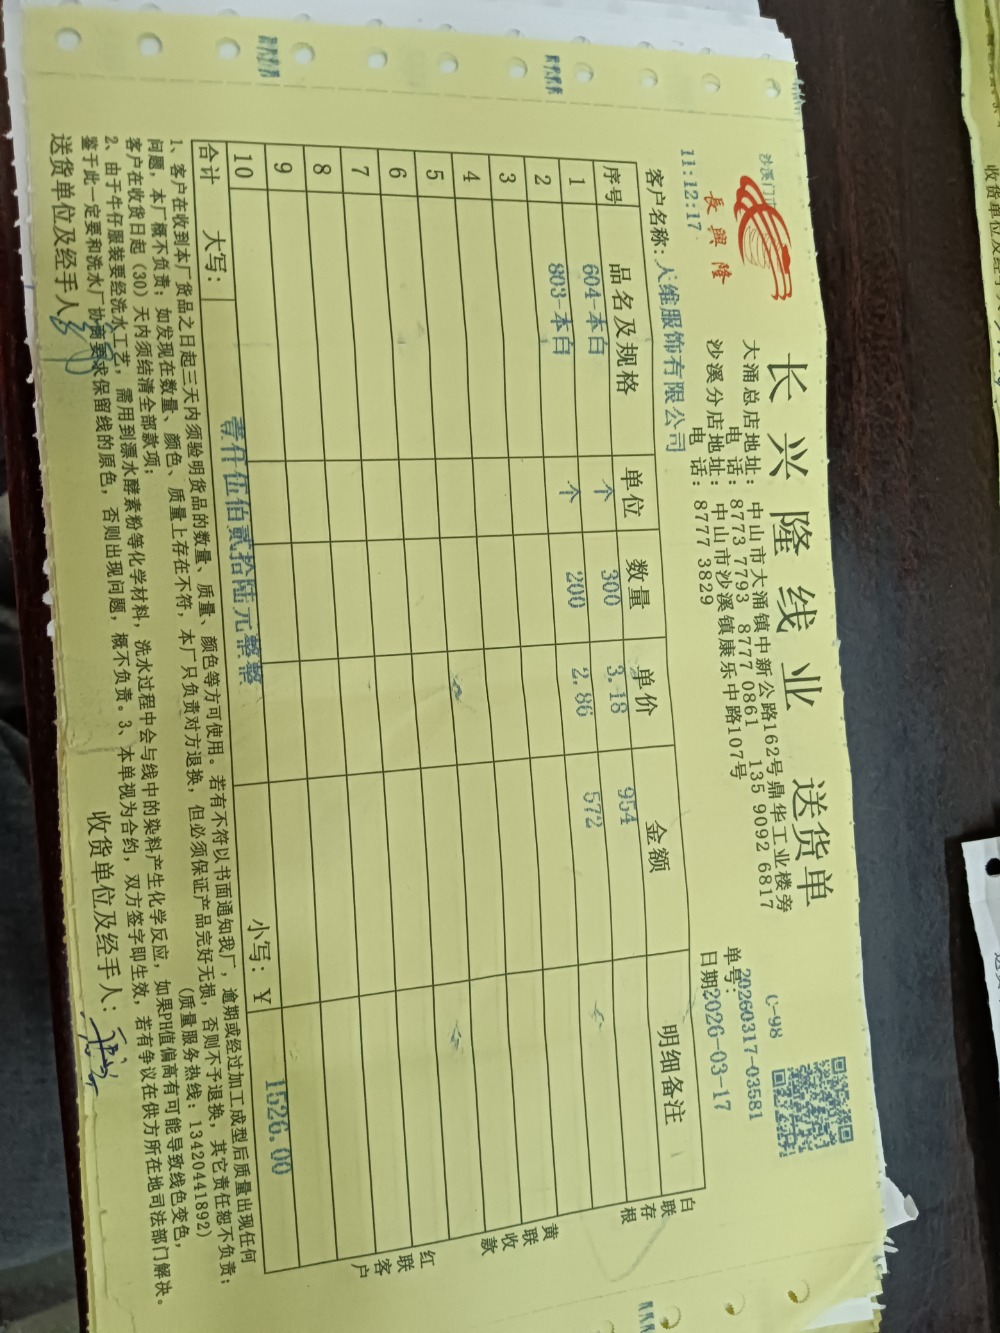 長興隆
长兴隆线业 送货单
C-98
大涌总店地址：中山市大涌镇中新公路162号鼎华工业楼旁
电 话：8773 7793 8777 0861 135 9092 6817
沙溪分店地址：中山市沙溪镇康乐中路107号
电 话：8777 3829
单号：20260317-03581
日期2026-03-17
11:12:17
客户名称：天维服饰有限公司
序号 品名及规格 单位 数量 单价 金额 明细备注
1 604-本白 个 300 3.18 954
2 803-本白 个 200 2.86 572
3
4
5
6
7
8
9
10
合计 大写：壹仟伍佰贰拾陆元整整 小写：￥ 1526.00
白联存根
黄联收款
红联客户
1、客户在收到本厂货品之日起三天内须验明货品的数量、质量、颜色等方可使用。若有不符以书面通知我厂，逾期或经过加工成型后质量出现任何
问题，本厂概不负责；如发现在数量、颜色、质量上存在不符，本厂只负责对方退换，但必须保证产品完好无损，否则不予退换，其它责任恕不负责；
客户在收货日起（30）天内须结清全部款项； （质量服务热线：13420441892）
2、由于牛仔服装要经洗水工艺，需用到漂水酵素粉等化学材料，洗水过程中会与线中的染料产生化学反应，如果PH值偏高有可能导致线色变色，
鉴于此一定要和洗水厂协商要求保留线的原色，否则出现问题，概不负责。3、本单视为合约，双方签字即生效，若有争议在供方所在地司法部门解决。
送货单位及经手人： 收货单位及经手人：